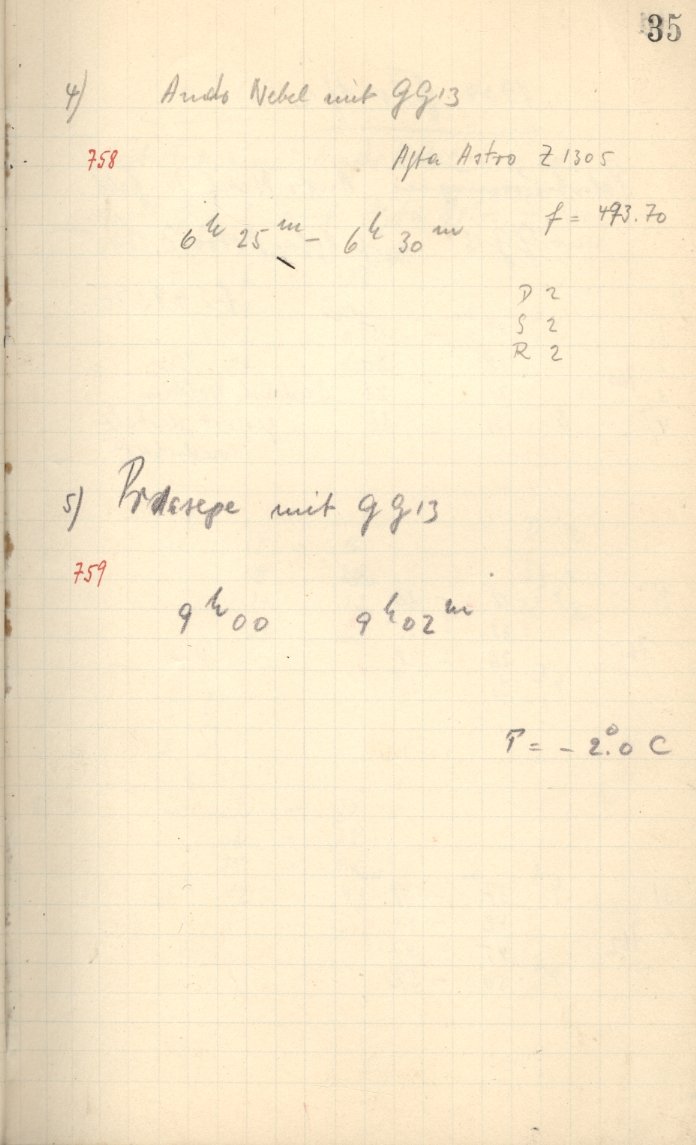 35
4) Ando Nebel mit GG13
758
Agfa Astro Z 1305
6h 25m – 6h 30m
f = 493.70
D 2
S 2
R 2
5) Praesepe mit GG13
759
9h 00 9h 02m
T = – 2.°0 C